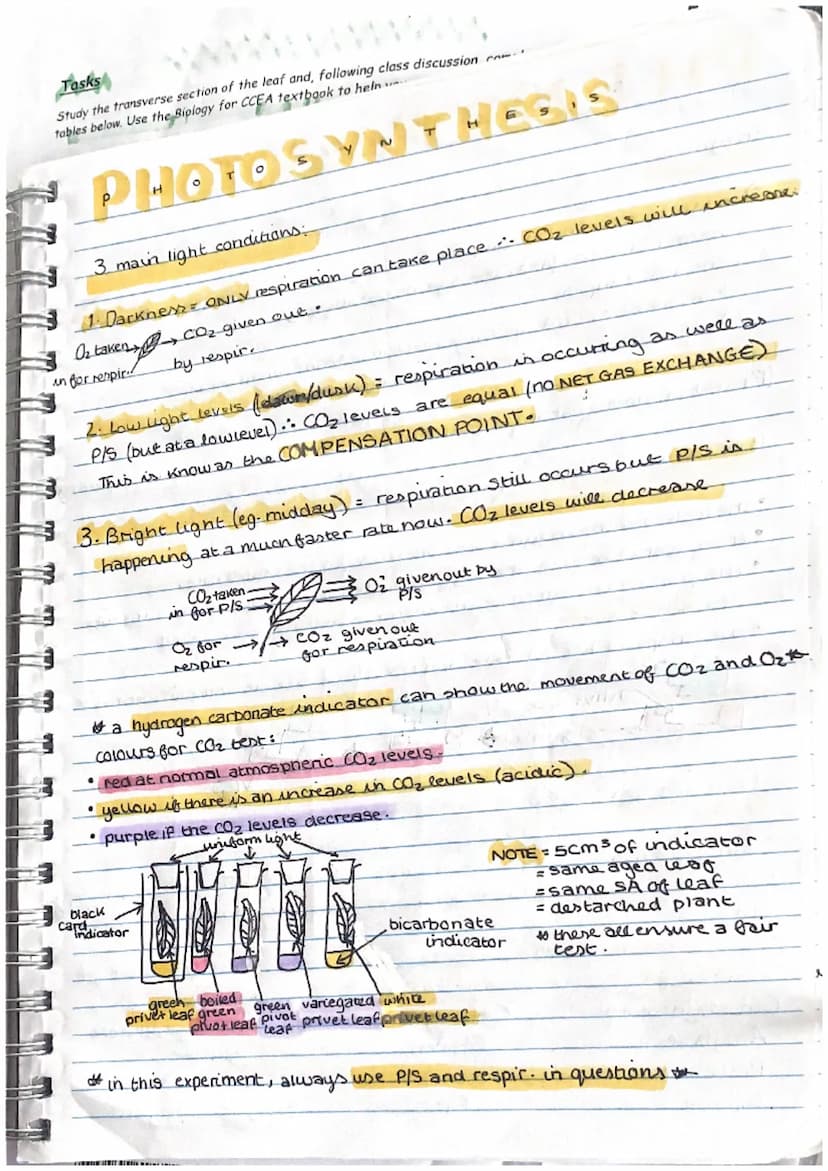 Tasks
Study the transverse section of the leaf and, following class discussion
tables below. Use the Biology for CCEA textbook to help
PHOTOSYNTHESIS
PHOTOSYNTHESIS
3 main light conditions:
1. Darkness = ONLY respiration can take place ∴ CO2 levels will increase.
O2 taken → → CO2 given out.
in for respir. by respir.
2. Low light levels (dawn/dusk) = respiration is occurring as well as
P/S (but at a low level) ∴ CO2 levels are equal (no NET GAS EXCHANGE)
This is know as the COMPENSATION POINT.
3. Bright light (eg. midday) = respiration still occurs but P/S is
happening at a much faster rate now. CO2 levels will decrease
CO2 taken in for P/S
O2 given out by P/S
O2 for respir. →
→ CO2 given out for respiration
* a hydrogen carbonate indicator can show the movement of CO2 and O2 *
colours for CO2 test:
• red at normal atmospheric CO2 levels.
• yellow if there is an increase in CO2 levels (acidic).
• purple if the CO2 levels decrease.
uniform light
NOTE = 5cm³ of indicator
= same aged leaf
= same SA of leaf
= destarched plant
* these all ensure a fair
test.
black
card
indicator
bicarbonate
indicator
green
privet leaf
boiled
green
pivot leaf
green
pivot
leaf
variegated
privet leaf
white
privet leaf
* in this experiment, always use P/S and respir. in questions *